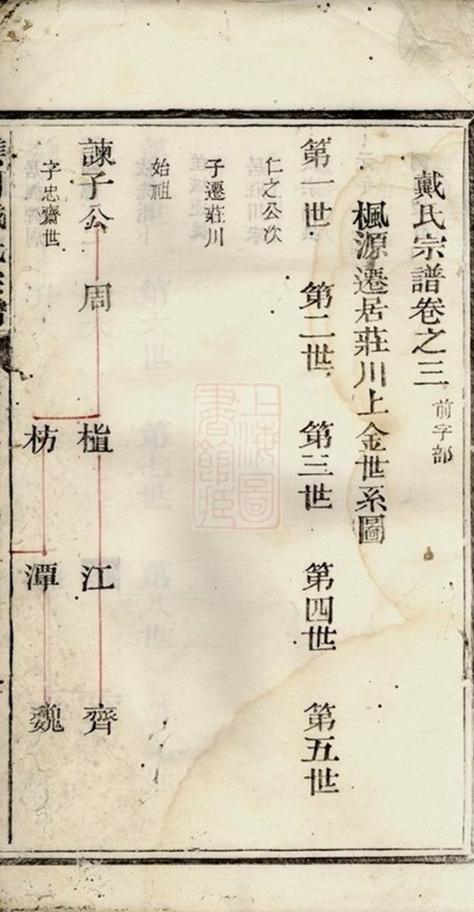 戴氏宗譜卷之三 前字部
楓源遷居莊川上金世系圖
第一世 第二世 第三世 第四世 第五世
仁之公次
子遷莊川
始祖
諫子公 周 植 江 齊
字忠齋世 枋 潭 魏
上海圖書館藏